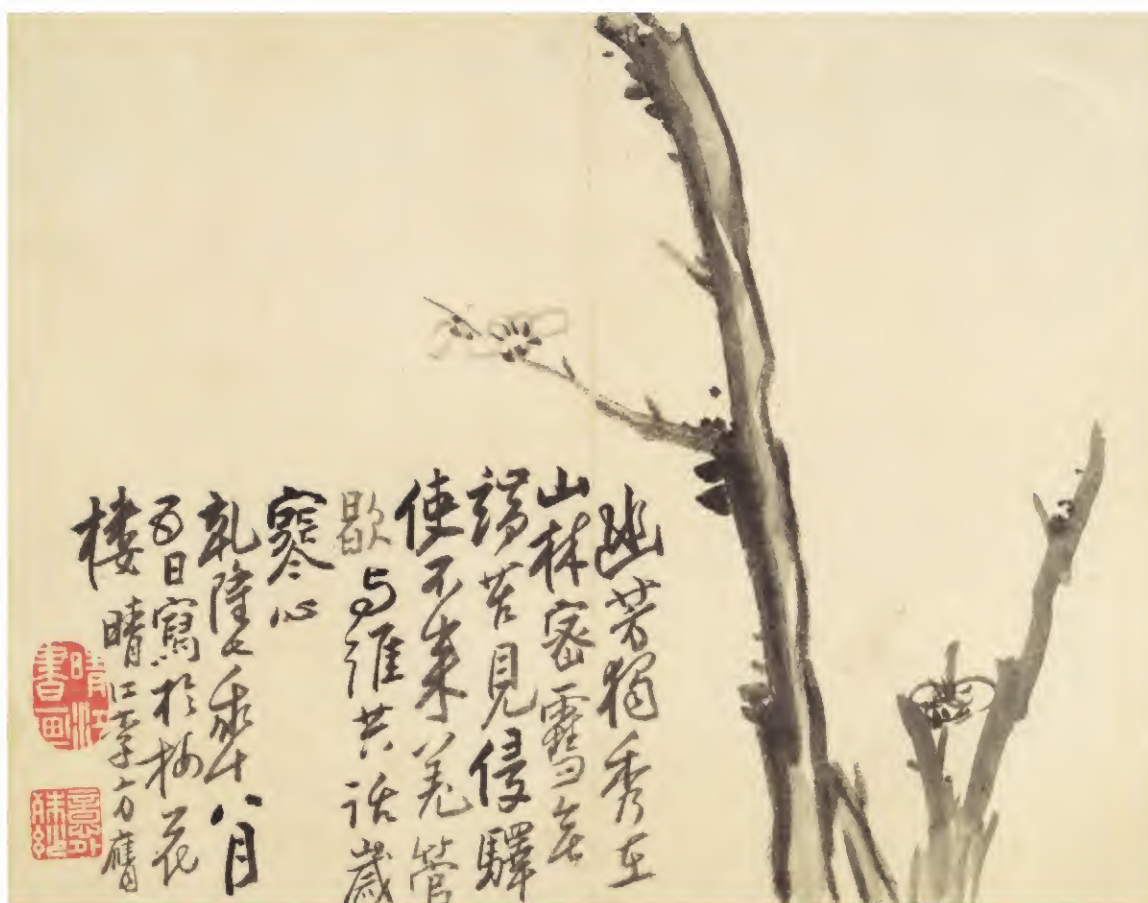 幽芳獨秀在
山林密雪無
端苦見侵驛
使不來羌管
歇与誰共話歲
寒心
乾隆乙亥年八月
五日寫於梅花
樓 晴江李方膺
晴江書畫